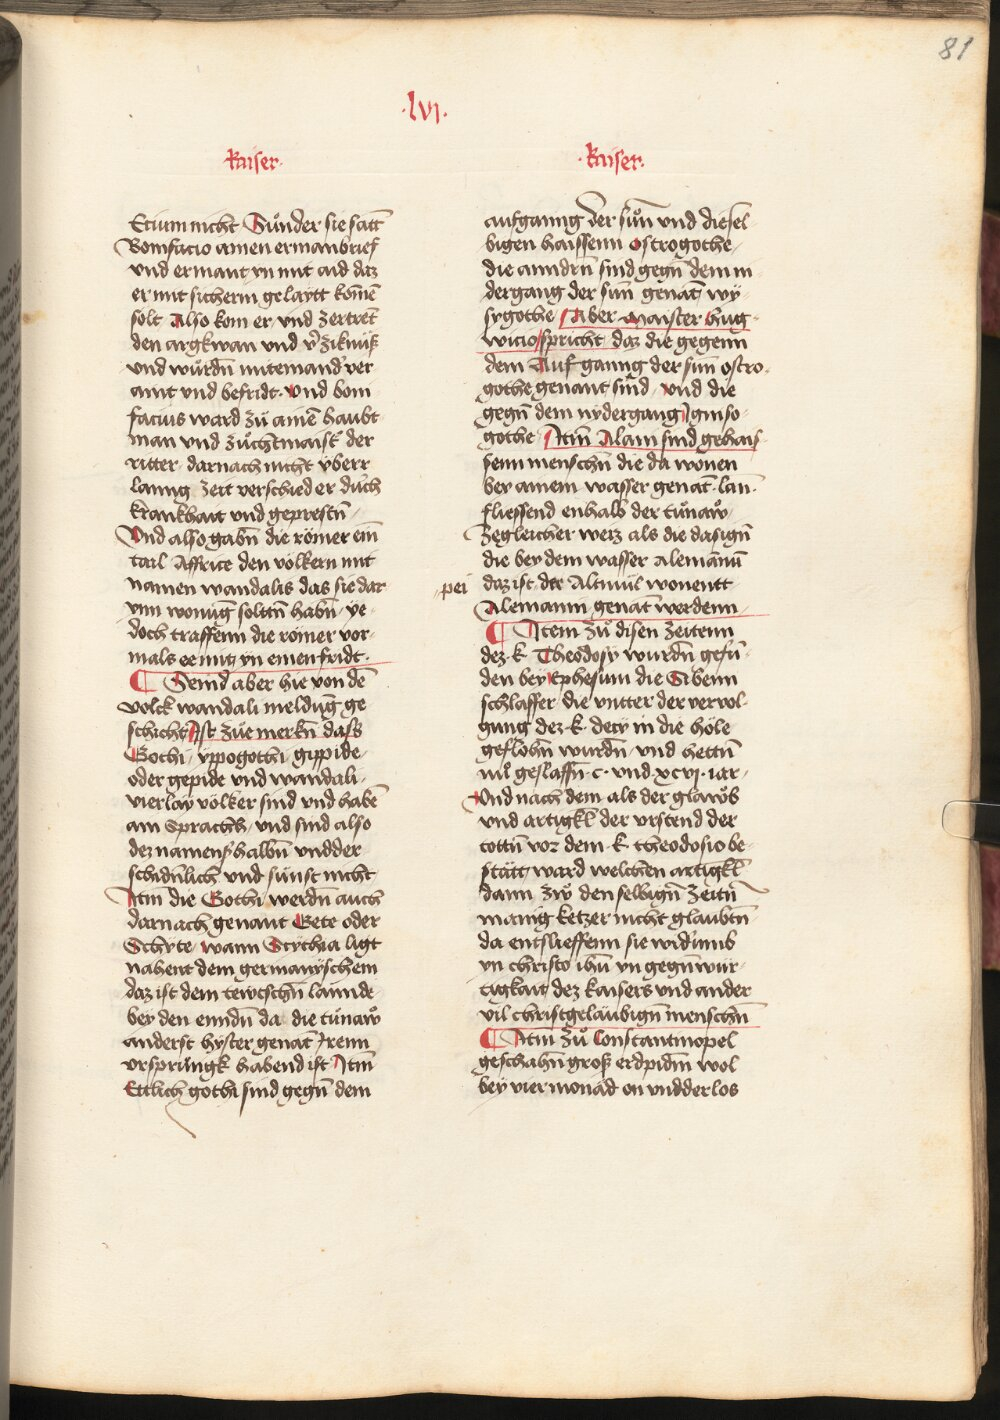 81
·lvi·
kaiser·
Etium nicht Sunder sie satt
Bonifacio ainen ermanbrief
vnd ermant yn mit aid daz
er mit sicherm gelaytt komē
solt Also kom er vnd zertret
den argkwan vnd
vnd wurdn miteinand ver
aint vnd befridt· Vnd boni
facius ward zu ainē haubt
man vnd zuchtmaist der
ritter darnach nicht yberr
lanng zeit verschied er durch
kranckhait vnd geprestn
Vnd also gabn die romer ein
tail Affrice den volkern mit
namen wandalis das sie dar
ynn wonūg soltn habn ye
doch traffenn die romer vor
mals ee mit yn einen fridt·
¶ Seind aber hie von dē
volck wandali meldūg ge
schicht Ist zue merkn dass
Gothi yppogothi gippide
oder gepide vnd wandali
vierlay volker sind vnd habē
ain Sprach vnd sind also
dez namens halbn vndder
schidnlich vnd sunst nicht
Itm die Gothi werdn auch
darnach genant Gete oder
Schyte wann Scythia ligt
nahent dem germanyschem
daz ist dem tewtschn lannde
bey den enndn da die tunaw
anderst hyster genat irenn
vrsprungk habend ist Itm
Ettlich gothi sind gegn dem
·kaiser·
aufganng der sun vnd diesel
bigen haissenn Ostrogothe
die anndrn sind gegn dem ni
dergang der sun genat wy
sygothe Aber Maister hug
wicio spricht daz die gegenn
dem Aufganng der sun ostro
gothe genant sind vnd die
gegn dem nydergang ypniso
gothe Itm Alani sind gehais
senn menschn die da wonen
bey ainem wasser genat lan
fliessend enhalb der tunaw
zegleicher weiz als die dasign
die bey dem wasser Alemannū
pei
daz ist der Altmul wonentt
Alemanni genat werdenn
¶ Item zu disen zeitenn
dez k Theodosy wurdn gefū
den bey Ephesum die Sibenn
schlaffer die vntter der vervol
gung dez k decy in die hole
geflohn wurdn vnd hettn
nil geslaffn c· vnd xcvj iar
Vnd nach dem als der glawb
vnd artigkl der vrstend der
tottn vor dem k theodosio be
stätt ward welchen artigkl
dann zw den selbign zeitn
manig ketzer nicht glaubtn
da entslieffenn sie
yn christo ihū yn gegnwur
tigkait dez kaisers vnd ander
vil christgelaubign menschn
¶ Itm zu Constantinopel
geschahn gross erdpidm wol
bey vier monad on vndderlos